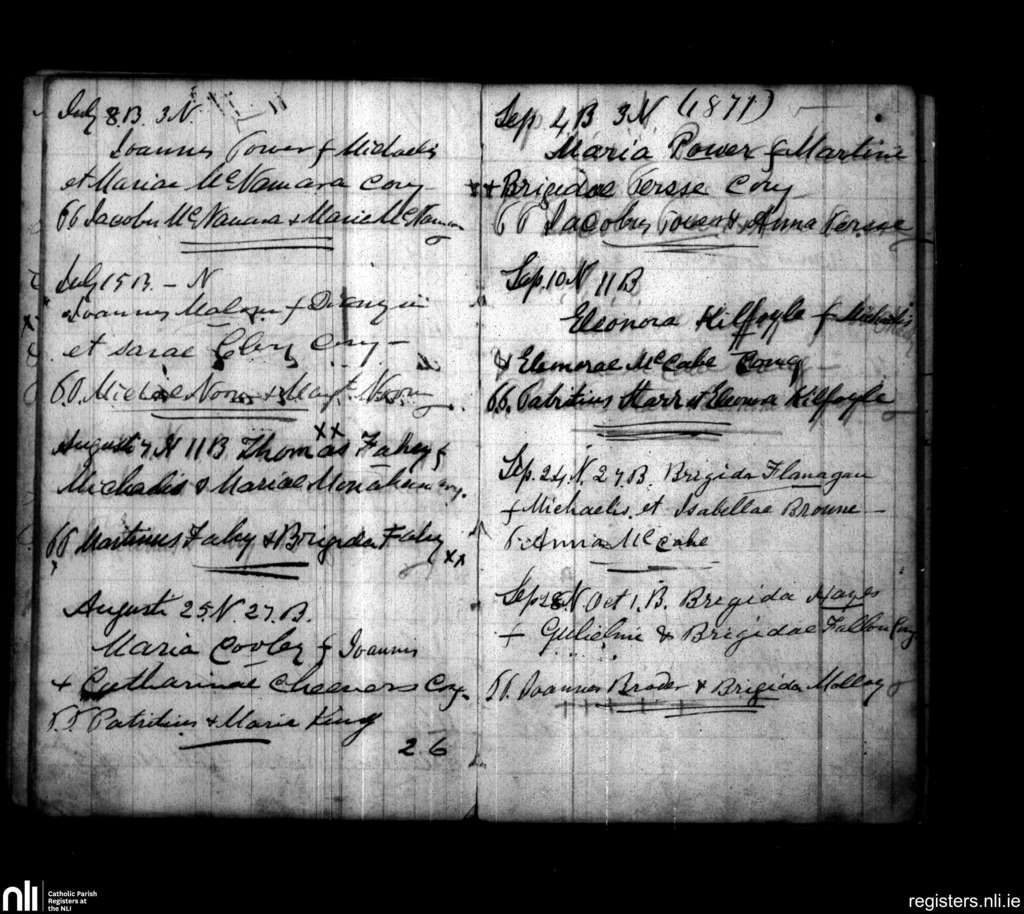 July 8.B. 3N.
Joannes Power f Michaelis
et Mariae McNamara Conj
PP Jacobus McNamara & Maria McNamara
July 15 B. – N
Joannes f
et Sarae Conj –
P.P. Michael Noon & Margt. Noon
Augusti 7 N 11B Thomas Fahey f
Michaelis & Mariae Monahan conj.
PP Martinus Fahy & Brigida Fahy xx
Augusti 25.N. 27.B.
Maria Cooley f Joannis
+ Catharinae Cheevers Conj.
P.P. Patritius & Maria King
26
Sep 4 B 3N (1871)
Maria Power f Martini
+ Brigidae Persse Conj
PP Jacobus Power & Anna Persse
Sep. 10 N 11B
Eleonora Kilfoyle f Michaelis
& Elenorae McCabe Conj
PP. Patritius Starr et Eleonora Kilfoyle
Sep. 24 N. 27.B. Brigida Flanagan
f Michaelis et Isabellae Browne –
P. Anna McCabe
Sep 28 N. Oct 1. B. Brigida Hayes
f Gulielmi & Brigidae Fallon Conj
PP. Joannes Broder & Brigida Molloy
nli
Catholic Parish
Registers at
the NLI
registers.nli.ie